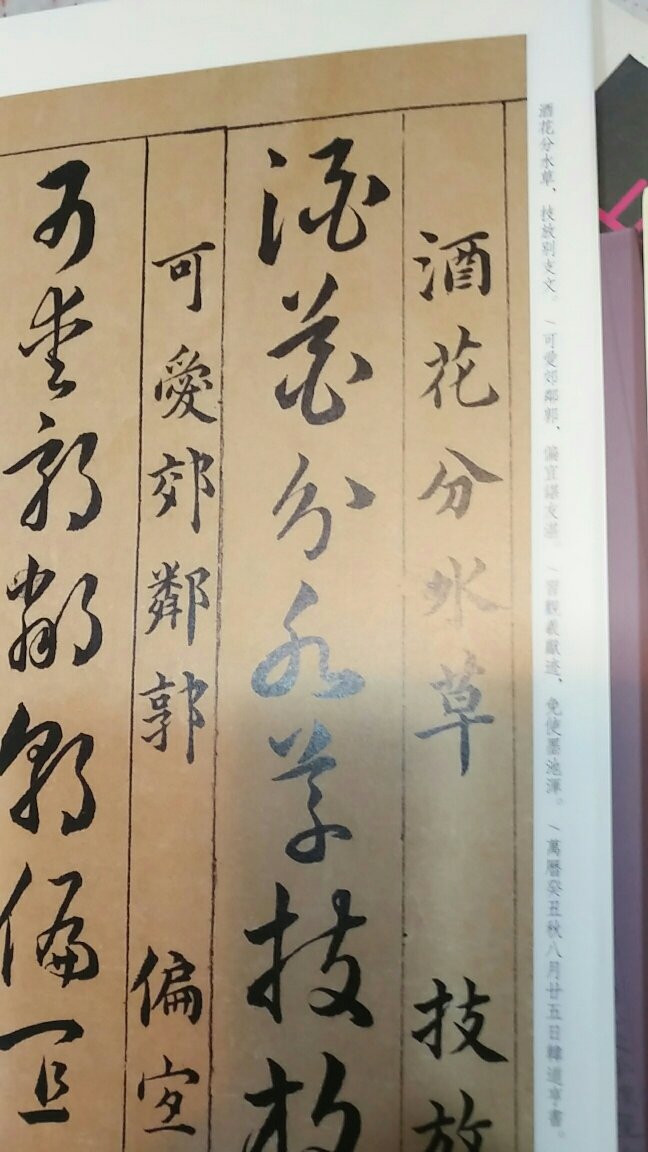 酒花分水草、技放别支文。／可愛郊鄰郭、偏宜諶友湛。／習觀羲獻迹、免使墨池渾。／萬曆癸丑秋八月廿五日韓道亨書。
酒花分水草 技放
酒花分水草技放
可愛郊鄰郭 偏宜
可愛郊鄰郭偏宜